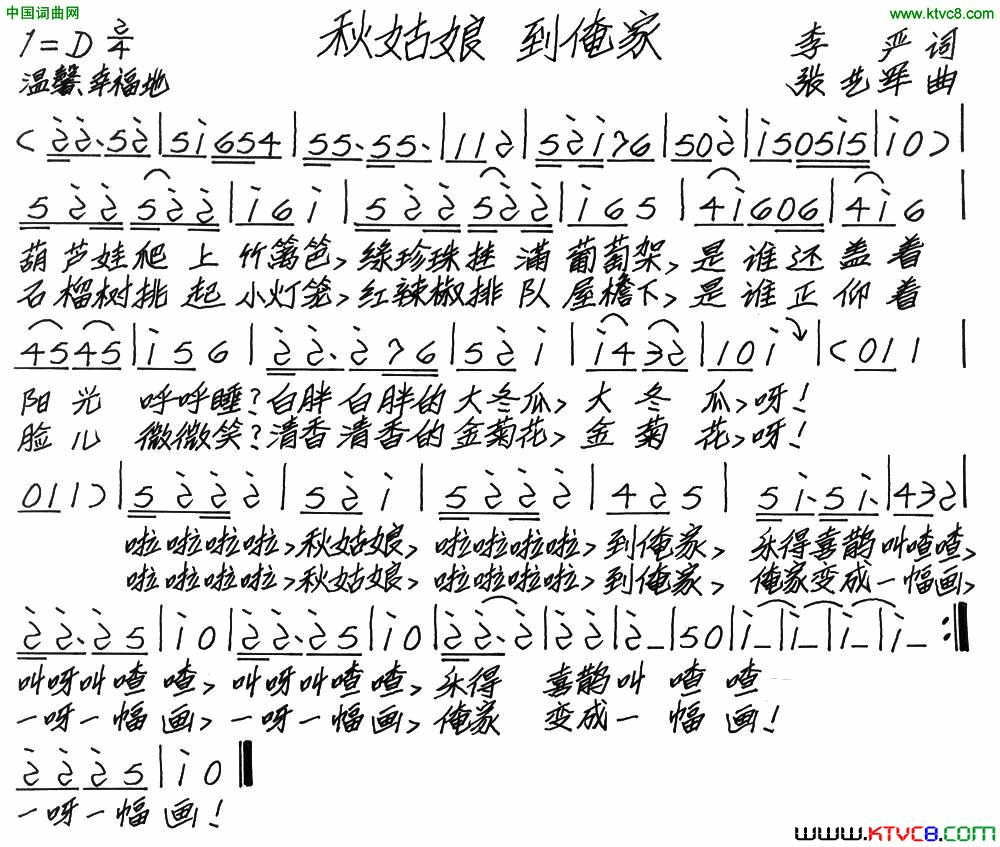 中国词曲网
www.ktvc8.com
秋姑娘 到俺家
1=D 2/4
李严词
温馨、幸福地
张艺军曲
( 2̇2̇·52̇ | 5i̇654 | 55·55· | 112 | 52̇i̇76 | 502̇ | i̇5051̇5 | i̇0 ) |
52̇2̇52̇2̇ | i̇6i̇ | 52̇2̇52̇2̇ | i̇65 | 4i̇606 | 4i̇6 |
葫芦娃爬上竹篱笆,绿珍珠挂满葡萄架,是谁还盖着
石榴树挑起小灯笼,红辣椒排队屋檐下,是谁正仰着
4545 | i̇56 | 2̇2̇·2̇76 | 52̇i̇ | i̇432̇ | i̇0i̇ | (011 |
阳光呼呼睡?白胖白胖的大冬瓜,大冬瓜,呀!
脸儿微微笑?清香清香的金菊花,金菊花,呀!
011) | 52̇2̇2̇ | 52̇i̇ | 52̇2̇2̇ | 425 | 5i̇·5i̇· | 432̇ |
啦啦啦啦,秋姑娘,啦啦啦啦,到俺家,乐得喜鹊叫喳喳,
啦啦啦啦,秋姑娘,啦啦啦啦,到俺家,俺家变成一幅画,
2̇2̇·2̇5 | i̇0 | 2̇2̇·2̇5 | i̇0 | 2̇2̇·2̇ | 2̇2̇ | 2̇– | 50 | i̇– | i̇– | i̇– | i̇– :‖
叫呀叫喳喳,叫呀叫喳喳,乐得喜鹊叫喳喳
一呀一幅画,一呀一幅画,俺家变成一幅画!
2̇2̇2̇5 | i̇0 ‖
一呀一幅画!
www.KTVC8.com